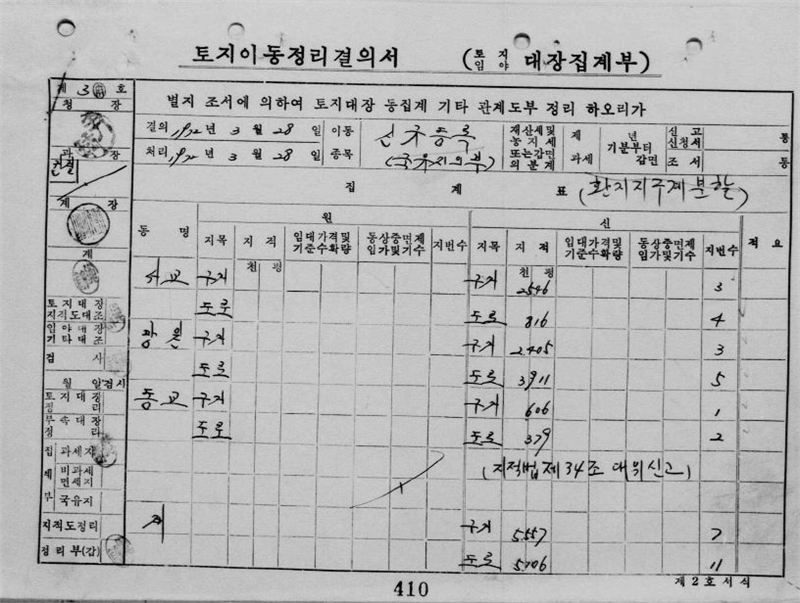 토지이동정리결의서 (토지 임야 대장집계부)
제 3 호
청 장
과 장
건설
계 장
계
토지대장
지적도대조
임야대장
기타대조
검 사
월 일 검사
토지대장
정 리
부속대장
정 리
집 계 부
과세지
비과세
면세지
국유지
지적도정리
정리부(갑)
별지 조서에 의하여 토지대장 등집계 기타 관계도부 정리 하오리가
결의 1972 년 3 월 28 일 이동 신규등록
처리 1972 년 3 월 28 일 종목 (국유지의부)
재산세및 농지세 또는감면 의분계
제 년 기분부터
과세 감면
신고 신청서 통
조서 통
집 계 표 (환지지구계분할)
동 명 원 신 적 요
지목 지적 임대가격및 기준수확량 동상중면제 임가및기수 지번수 지목 지적 임대가격및 기준수확량 동상중면제 임가및기수 지번수
천 평 천 평
서교 구거 구거 2546 3
도로 도로 816 4
구거 구거 2405 3
도로 도로 3911 5
동교 구거 구거 606 1
도로 도로 379 2
(지적법 제34조 대위신고)
계 구거 5557 7
도로 5106 11
410
제2호서식